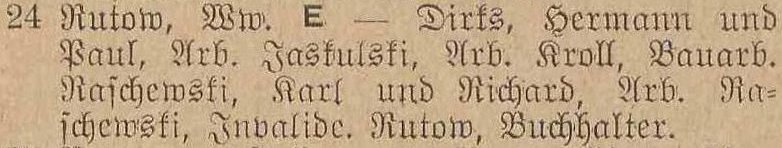 24 Rutow, Ww. E — Dirks, Hermann und
Paul, Arb. Jaskulski, Arb. Kroll, Bauarb.
Raschewski, Karl und Richard, Arb. Ra-
schewski, Invalide. Rutow, Buchhalter.